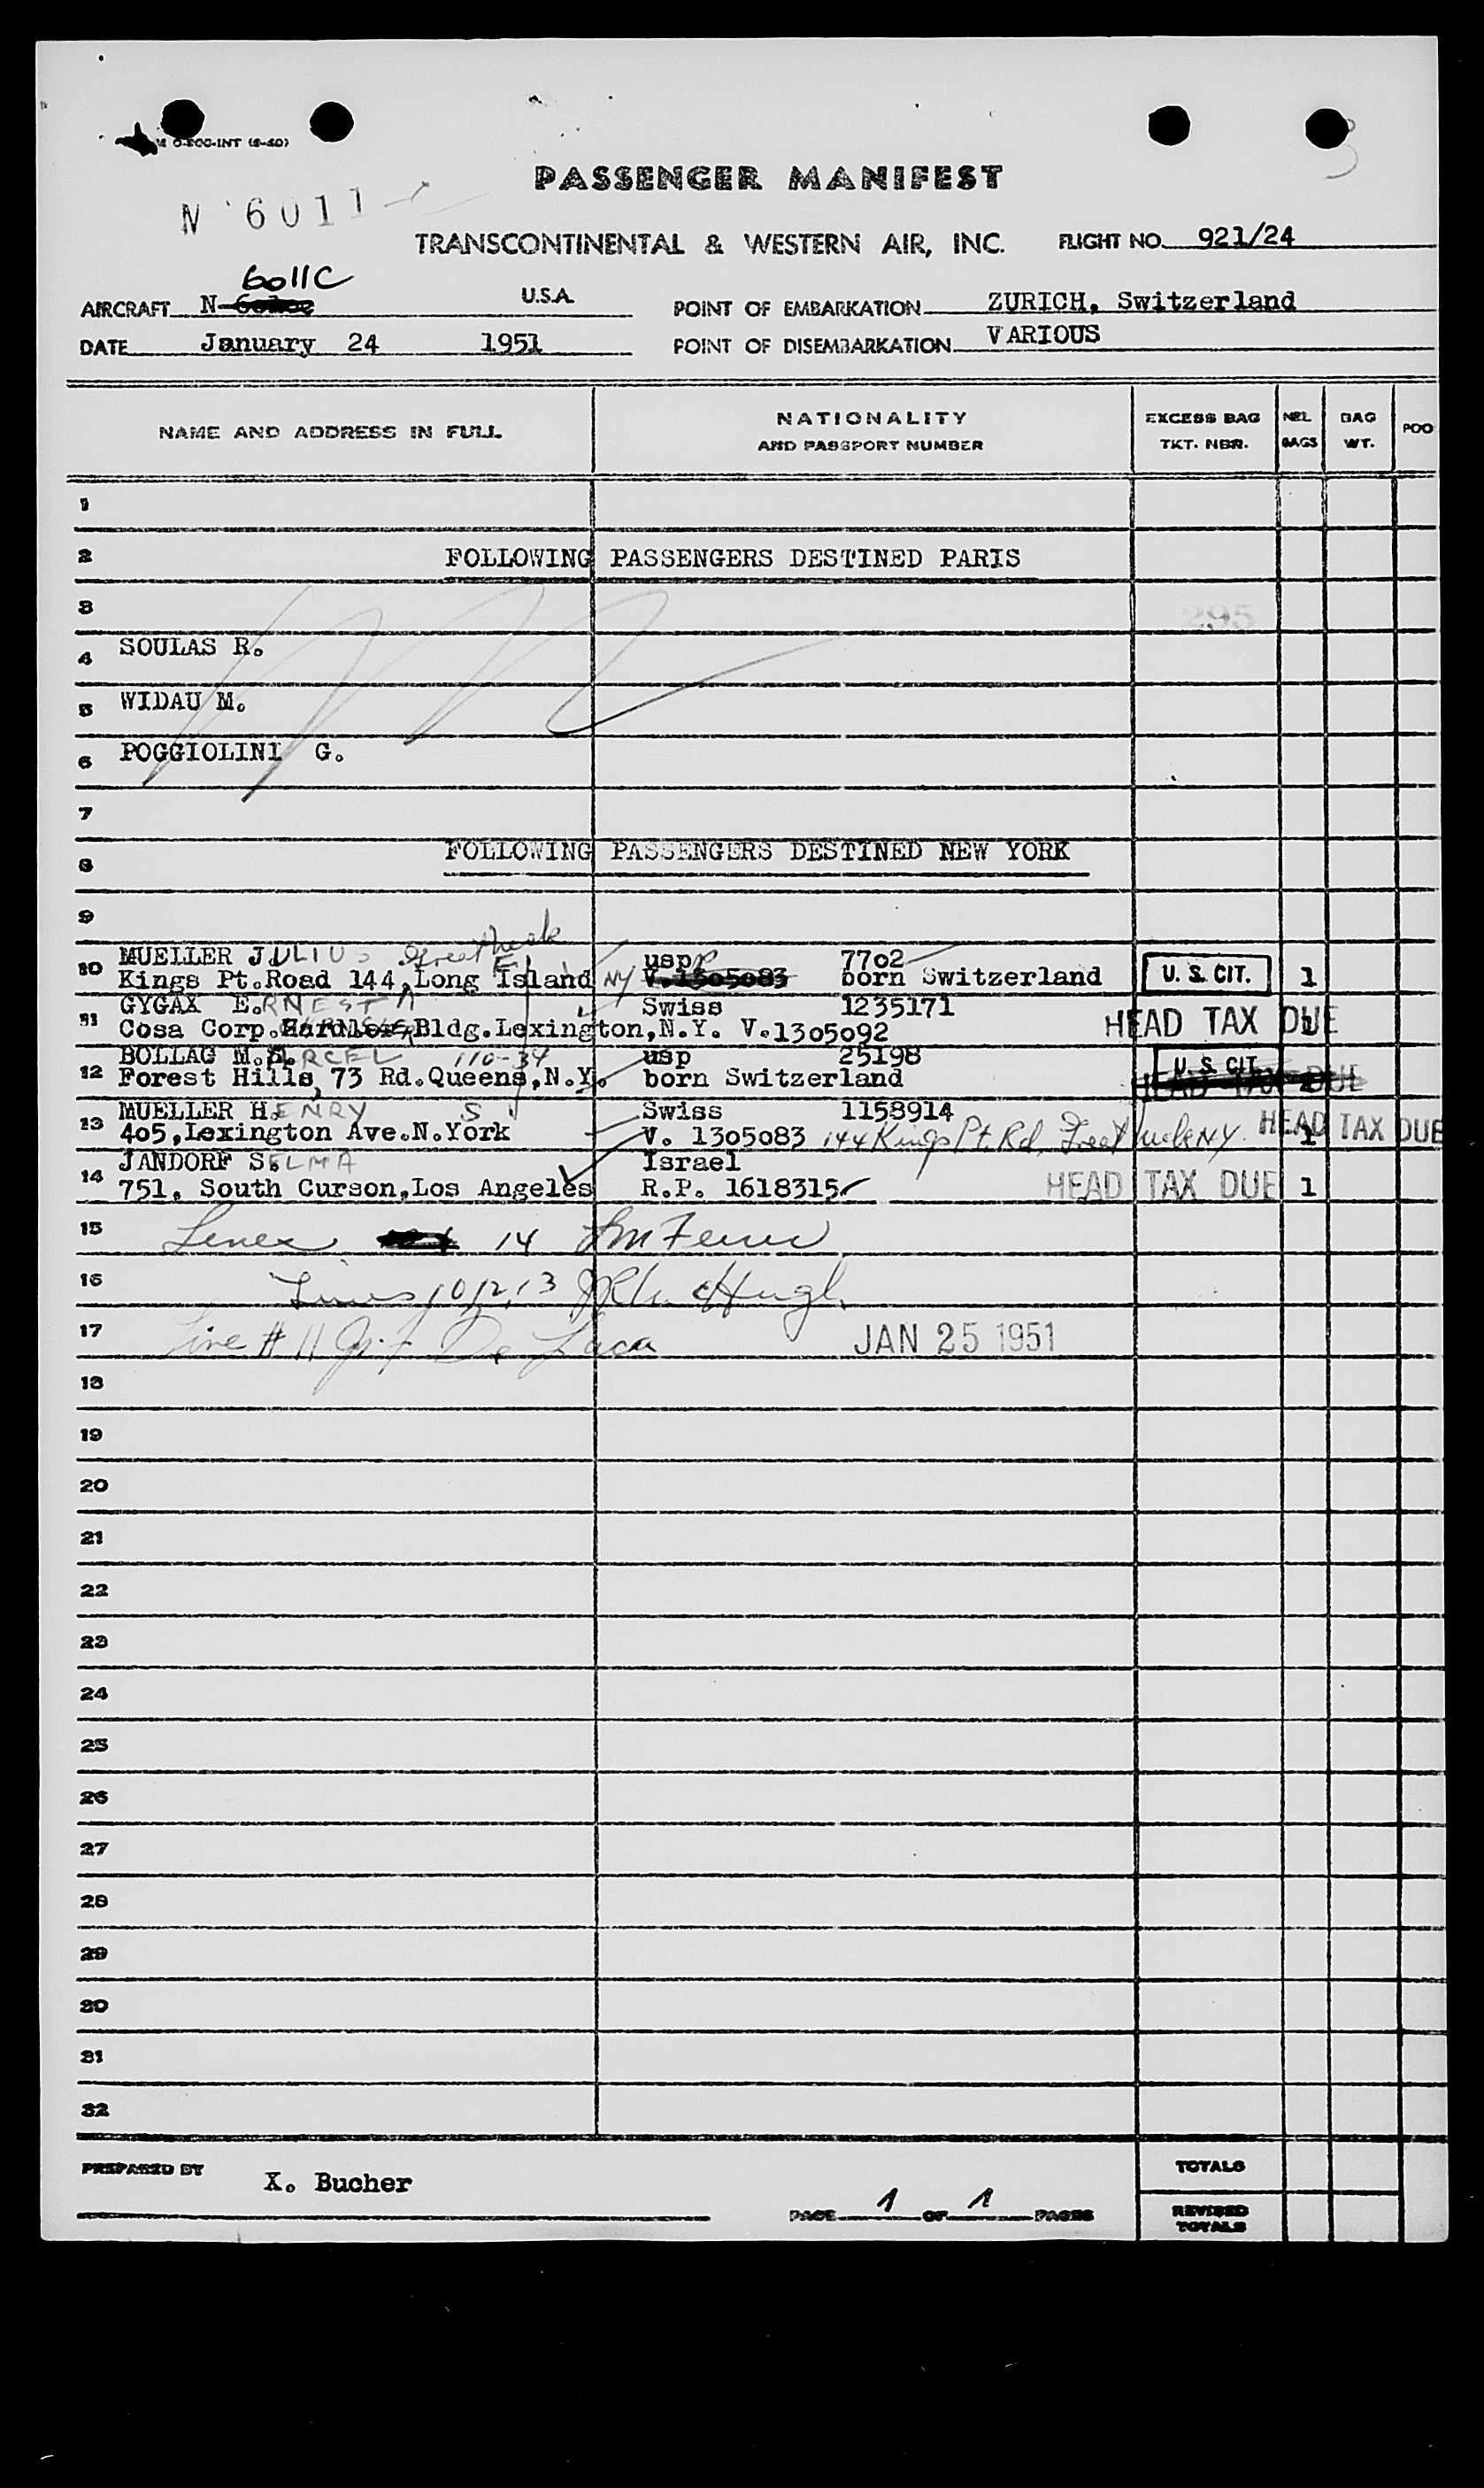 3
O-200-INT (5-50)
PASSENGER MANIFEST
N 6011-C
TRANSCONTINENTAL & WESTERN AIR, INC. FLIGHT NO. 921/24
6011C
AIRCRAFT N- U.S.A. POINT OF EMBARKATION ZURICH, Switzerland
DATE January 24 1951 POINT OF DISEMBARKATION VARIOUS
NAME AND ADDRESS IN FULL NATIONALITY AND PASSPORT NUMBER EXCESS BAG TKT. NBR. NBR. BAGS BAG WT. POO
1
2 FOLLOWING PASSENGERS DESTINED PARIS
3 295
4 SOULAS R.
5 WIDAU M.
6 POGGIOLINI G.
7
8 FOLLOWING PASSENGERS DESTINED NEW YORK
9
10 MUELLER JULIUS Great Neck usp 7702
Kings Pt.Road 144,Long Island NY V.1305083 born Switzerland U. S. CIT. 1
11 GYGAX ERNEST A Swiss 1235171
Cosa Corp. Bldg.Lexington,N.Y. V.1305092 HEAD TAX DUE 1
12 BOLLAG MARCEL 110-34 usp 25198
Forest Hills, 73 Rd.Queens,N.Y. born Switzerland U. S. CIT. HEAD TAX DUE
13 MUELLER HENRY S Swiss 1158914
405,Lexington Ave.N.York V. 1305083 144 Kings Pt. Rd, Great Neck NY HEAD TAX DUE 1
14 JANDORF SELMA Israel
751, South Curson,Los Angeles R.P. 1618315 HEAD TAX DUE 1
15 Lines 14
16 Lines 10,12,13
17 Line # 11 JAN 25 1951
18
19
20
21
22
23
24
25
26
27
28
29
30
31
32
PREPARED BY X. Bucher
PAGE 1 OF 1 PAGES
TOTALS
REVISED TOTALS